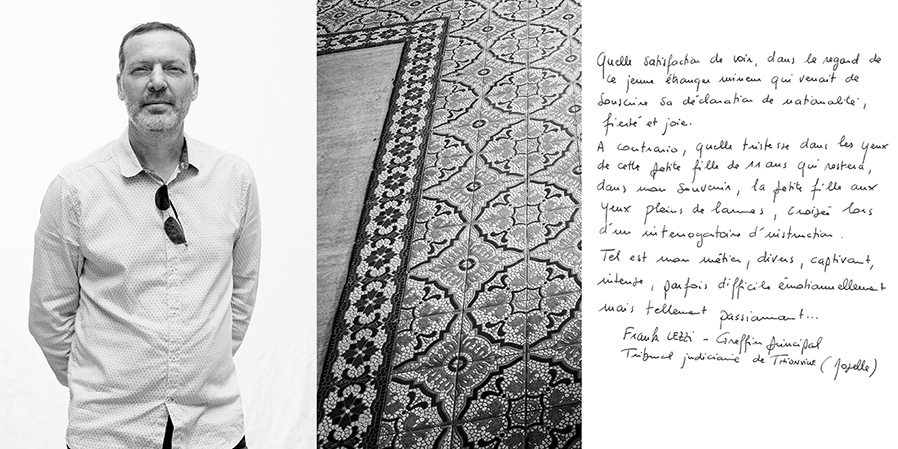 Quelle satisfaction de voir, dans le regard de
ce jeune étranger mineur qui venait de
souscrire sa déclaration de nationalité,
fierté et joie.
A contrario, quelle tristesse dans les yeux
de cette petite fille de 11 ans qui restera,
dans mon souvenir, la petite fille aux
yeux pleins de larmes, croisée lors
d'un interrogatoire d'instruction.
Tel est mon métier, divers, captivant,
intense, parfois difficile émotionnellement
mais tellement passionnant...
Frank LEZZI - Greffier principal
Tribunal judiciaire de THIONVILLE (Moselle)